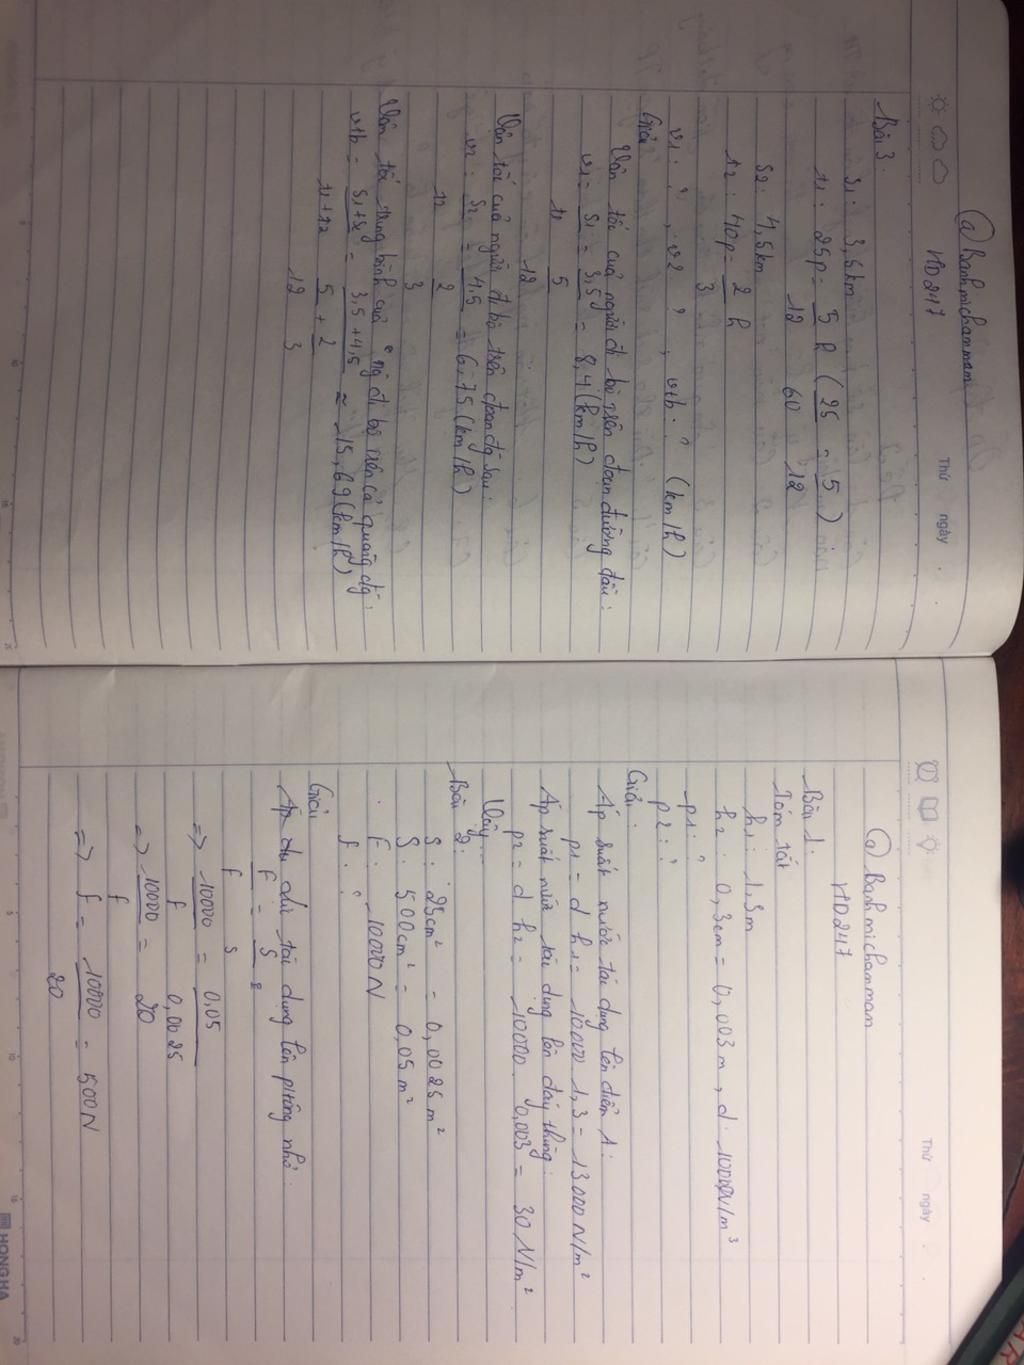 @Banhmichammam
HD247
Thứ ngày
Bài 3:
s1: 3,5km
t1: 25p = 5/12 h (25/60 = 5/12)
s2: 4,5km
t2: 40p = 2/3 h
v1: ?, v2 ?, vtb: ? (km/h)
Giải
Vận tốc của người đi bộ trên đoạn đường đầu:
v1 = s1/t1 = 3,5/(5/12) = 8,4 (km/h)
Vận tốc của người đi bộ trên đoạn đg sau:
v2 = s2/t2 = 4,5/(2/3) = 6,75 (km/h)
Vận tốc trung bình của ng đi bộ trên cả quãng đg:
vtb = (s1+s2)/(t1+t2) = (3,5+4,5)/(5/12 + 2/3) ≈ 15,69 (km/h)
Thứ ngày
@Banhmichammam
HD247
Bài 1:
Tóm tắt
h1: 1,3m
h2: 0,3cm = 0,003m, d: 10000N/m³
p1: ?
p2: ?
Giải:
Áp suất nước tác dụng lên điểm 1:
p1 = d h1 = 10000 1,3 = 13000 N/m²
Áp suất nước tác dụng lên đáy thùng:
p2 = d h2 = 10000. 0,003 = 30 N/m²
Vậy...
Bài 2:
s: 25cm² = 0,0025m²
S: 500cm² = 0,05m²
F: 10000N
f: ?
Giải
Áp dụ lực tác dụng lên pittông nhỏ:
F/f = S/s
=> 10000/f = 0,05/0,0025
=> 10000/f = 20
=> f = 10000/20 = 500N
HONG HA